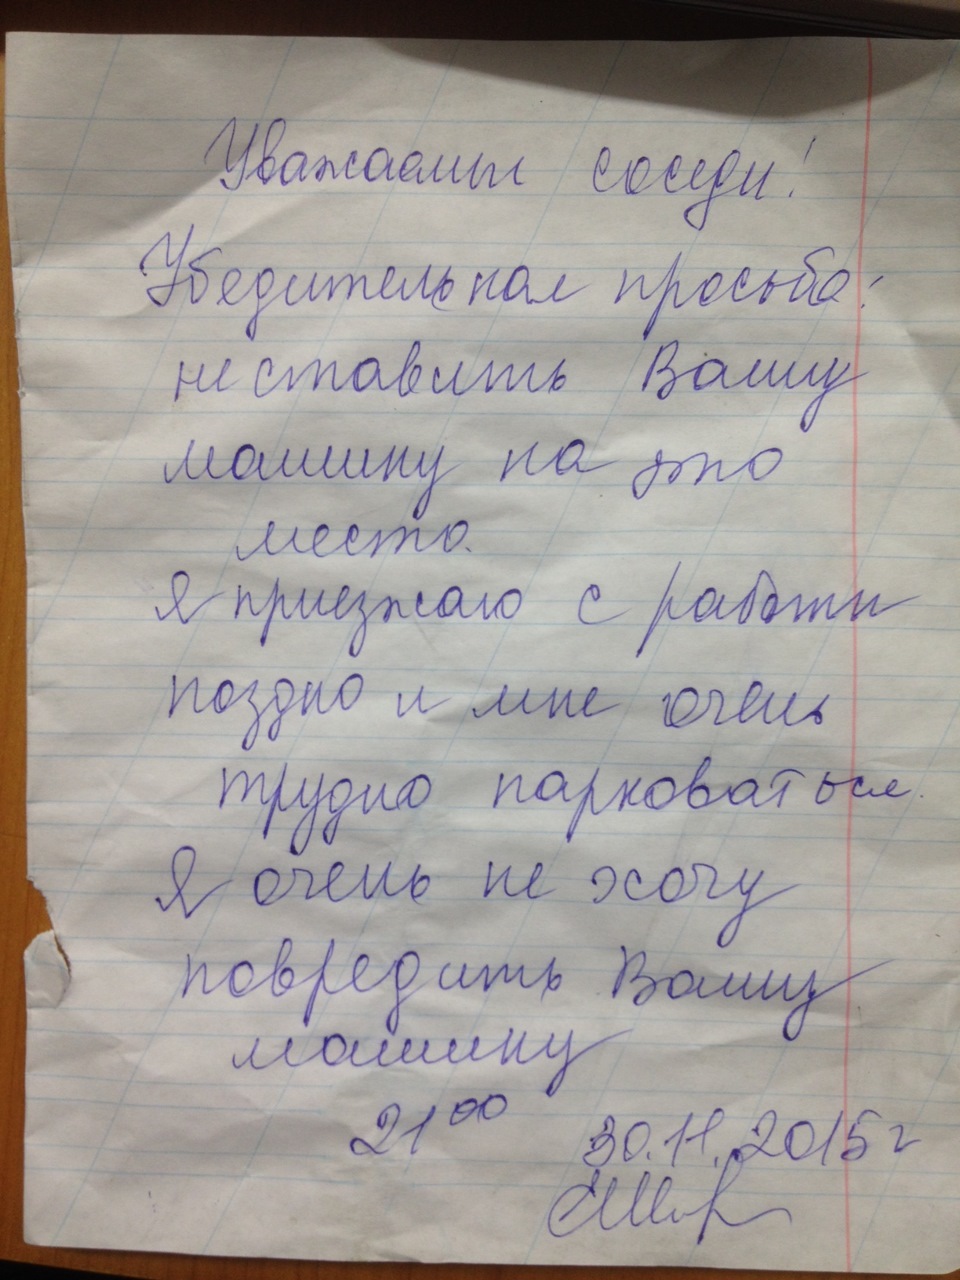 Уважаемые соседи!
Убедительная просьба:
не ставить Вашу
машину на это
место.
Я приезжаю с работы
поздно и мне очень
трудно парковаться.
Я очень не хочу
повредить Вашу
машину
21⁰⁰ 30.11.2015 г